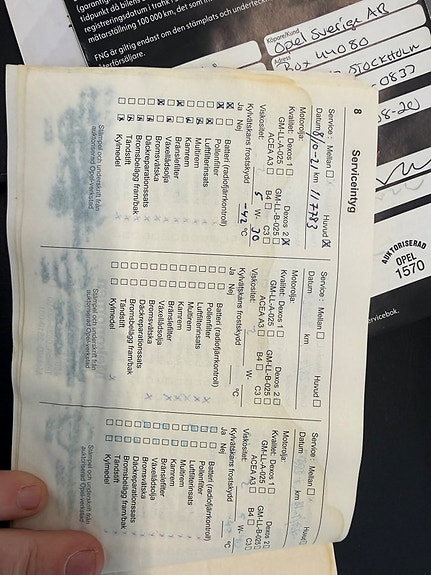 8
Serviceintyg
Service: Mellan ☐ Huvud ☒
Datum 8/10-21 km 117783
Motorolja:
Kvalitet: Dexos 1 ☐ Dexos 2 ☒
GM-LL-A-025 ☐ GM-LL-B-025 ☐
ACEA A3 ☐ B4 ☐ C3 ☐
Viskositet: 5 W- 30
Kylvätskans frostskydd -42 °C
Ja Nej
Batteri (radiofjärrkontroll)
Pollenfilter
Luftfilterinsats
Multirem
Kamrem
Bränslefilter
Växellådsolja
Bromsvätska
Däckreparationssats
Bromsbelägg fram/bak
Tändstift
Kylmedel
Stämpel och underskrift från
auktoriserad Opel-verkstad
Service: Mellan ☐ Huvud ☐
Datum km
Motorolja:
Kvalitet: Dexos 1 ☐ Dexos 2 ☐
GM-LL-A-025 ☐ GM-LL-B-025 ☐
ACEA A3 ☐ B4 ☐ C3 ☐
Viskositet: W-
Kylvätskans frostskydd °C
Ja Nej
Batteri (radiofjärrkontroll)
Pollenfilter
Luftfilterinsats
Multirem
Kamrem
Bränslefilter
Växellådsolja
Bromsvätska
Däckreparationssats
Bromsbelägg fram/bak
Tändstift
Kylmedel
Stämpel och underskrift från
auktoriserad Opel-verkstad
Service: Mellan ☐ Huvud ☐
Datum km
Motorolja:
Kvalitet: Dexos 1 ☐ Dexos 2 ☐
GM-LL-A-025 ☐ GM-LL-B-025 ☐
ACEA A3 ☐ B4 ☐ C3 ☐
Viskositet: W-
Kylvätskans frostskydd °C
Ja Nej
Batteri (radiofjärrkontroll)
Pollenfilter
Luftfilterinsats
Multirem
Kamrem
Bränslefilter
Växellådsolja
Bromsvätska
Däckreparationssats
Bromsbelägg fram/bak
Tändstift
Kylmedel
Stämpel och underskrift från
auktoriserad Opel-verkstad
mätarställning 100 000 km, det som
FNG är giltig endast om den stämplats och underteck
återförsäljare.
Köpare/Kund
Opel Sverige AB
Box 44080
STOCKHOLM
AUKTORISERAD
OPEL
1570
servicebok.